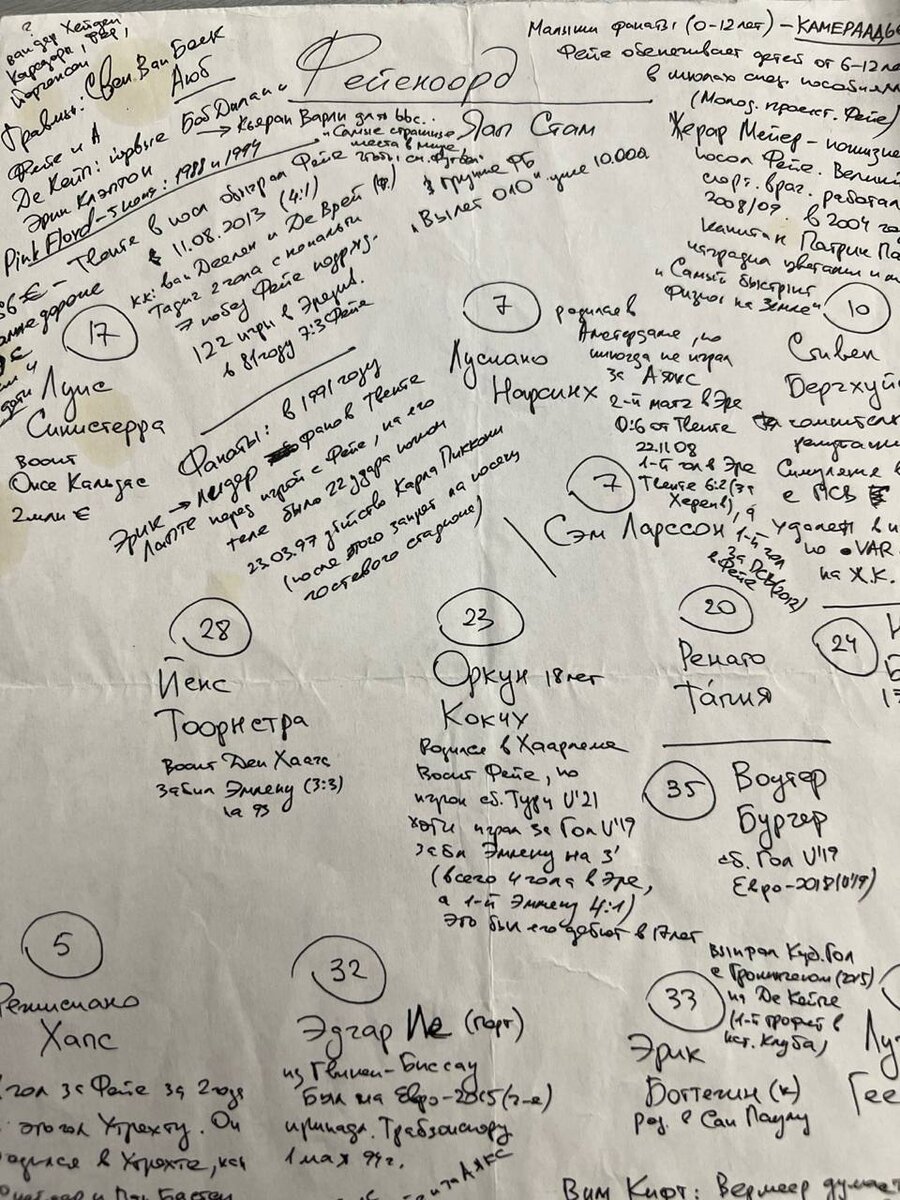 ?
ван дер Хейден
Травмы: Свен Ван Беек
Аюб
Фейе и А
Де Кейп: первые Боб Дилан и
Эрик Клэптон
Pink Floyd – 5 июня: 1988 и 1994
→ Кьеран Варли для ббс..
„Самые страшные
места в мире
Фейеноорд
Яап Стам
в группе ФБ
„Вылет 010“ уже 10.000
Малыши фанаты (0-12 лет) – КАМЕРААДЬ
Фейе обеспечивает детей от 6-12 ле
в школах спец. пособиям
(Молод. проект. Фейе)
Жерар Мейер – пожизне
посол Фейе. Велик
спорт. врач. работал
2008/09. в 2004 го
капитан Патрик Па
наградил цветами и
„Самый быстрый
физио на Земле“
Твенте в посл обыграл Фейе
11.08.2013 (4:1)
КК: ван Деелен и Де Врей (Ф.)
Тадич 2 гола с пенальти
7 побед Фейе подряд.
122 игры в Эредив.
в 81 году 7:3 Фейе
17
Луис
Синистерра
восп
Онсе Кальдас
2 млн €
Фанаты: в 1991 году
Эрик → лидер фанов Твенте
перед игрой с Фейе, на его
теле было 22 удара ножом
23.03.97 убийство Карла Пиккорни
(после этого запрет на посещ
гостевого стадиона)
7
Лусиано
Нарсингх
родился в
Амстердаме, но
никогда не играл
за Аякс
2-й матч в Эре
0:6 от Твенте
22.11.08
1-й гол в Эре
Твенте 6:2 (за
Херенв), а
1-й гол
за ПСВ (2012)
в Фейе
7
Сэм Ларссон
10
Стивен
Бергхуй
репутаци
Симуляция в
с ПСВ
удалён в
по VAR
на Ж.К.
28
Йенс
Тоорнстра
Восп Ден Хааге
Забил Эммену (3:3)
на 93
23
Оркун 18 лет
Кокчу
Родился в Хаарлеме
Восп Фейе, но
игрок сб. Турц U'21
хотя играл за Гол U'19
забил Эммену на 3'
(всего 4 гола в Эре,
а 1-й Эммену 4:1)
Это был его дебют в 17 лет
20
Ренато
Та́пия
24
35
Воутер
Бургер
сб. Гол U'19
Евро-2018 (U'19)
5
Хапс
гол за Фейе за 2 года
это гол Утрехту. Он
родился в Утрехте, как
32
Эдгар Ие (порт)
из Гвинеи-Биссау
Был на Евро-2015
принадл. Трабзонспору
1 мая 94 г.
за АЯКС
33
Эрик
Боттегин (к)
род. в Сан Паулу
выиграл Куб. Гол
с Гронингеном (2015)
на Де Кейпе
(1-й трофей в
ист. клуба)
Вим Кифт: Вермеер думае